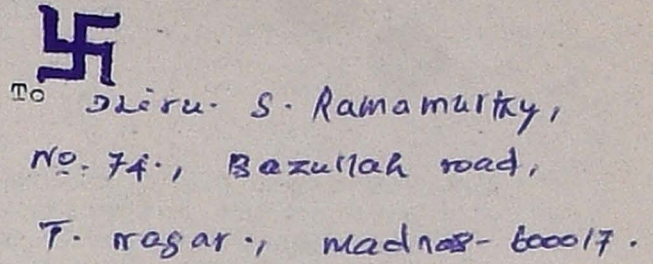 To Thiru. S. Ramamurthy,
No. 74., Bazullah road,
T. nagar., madras- 600017.